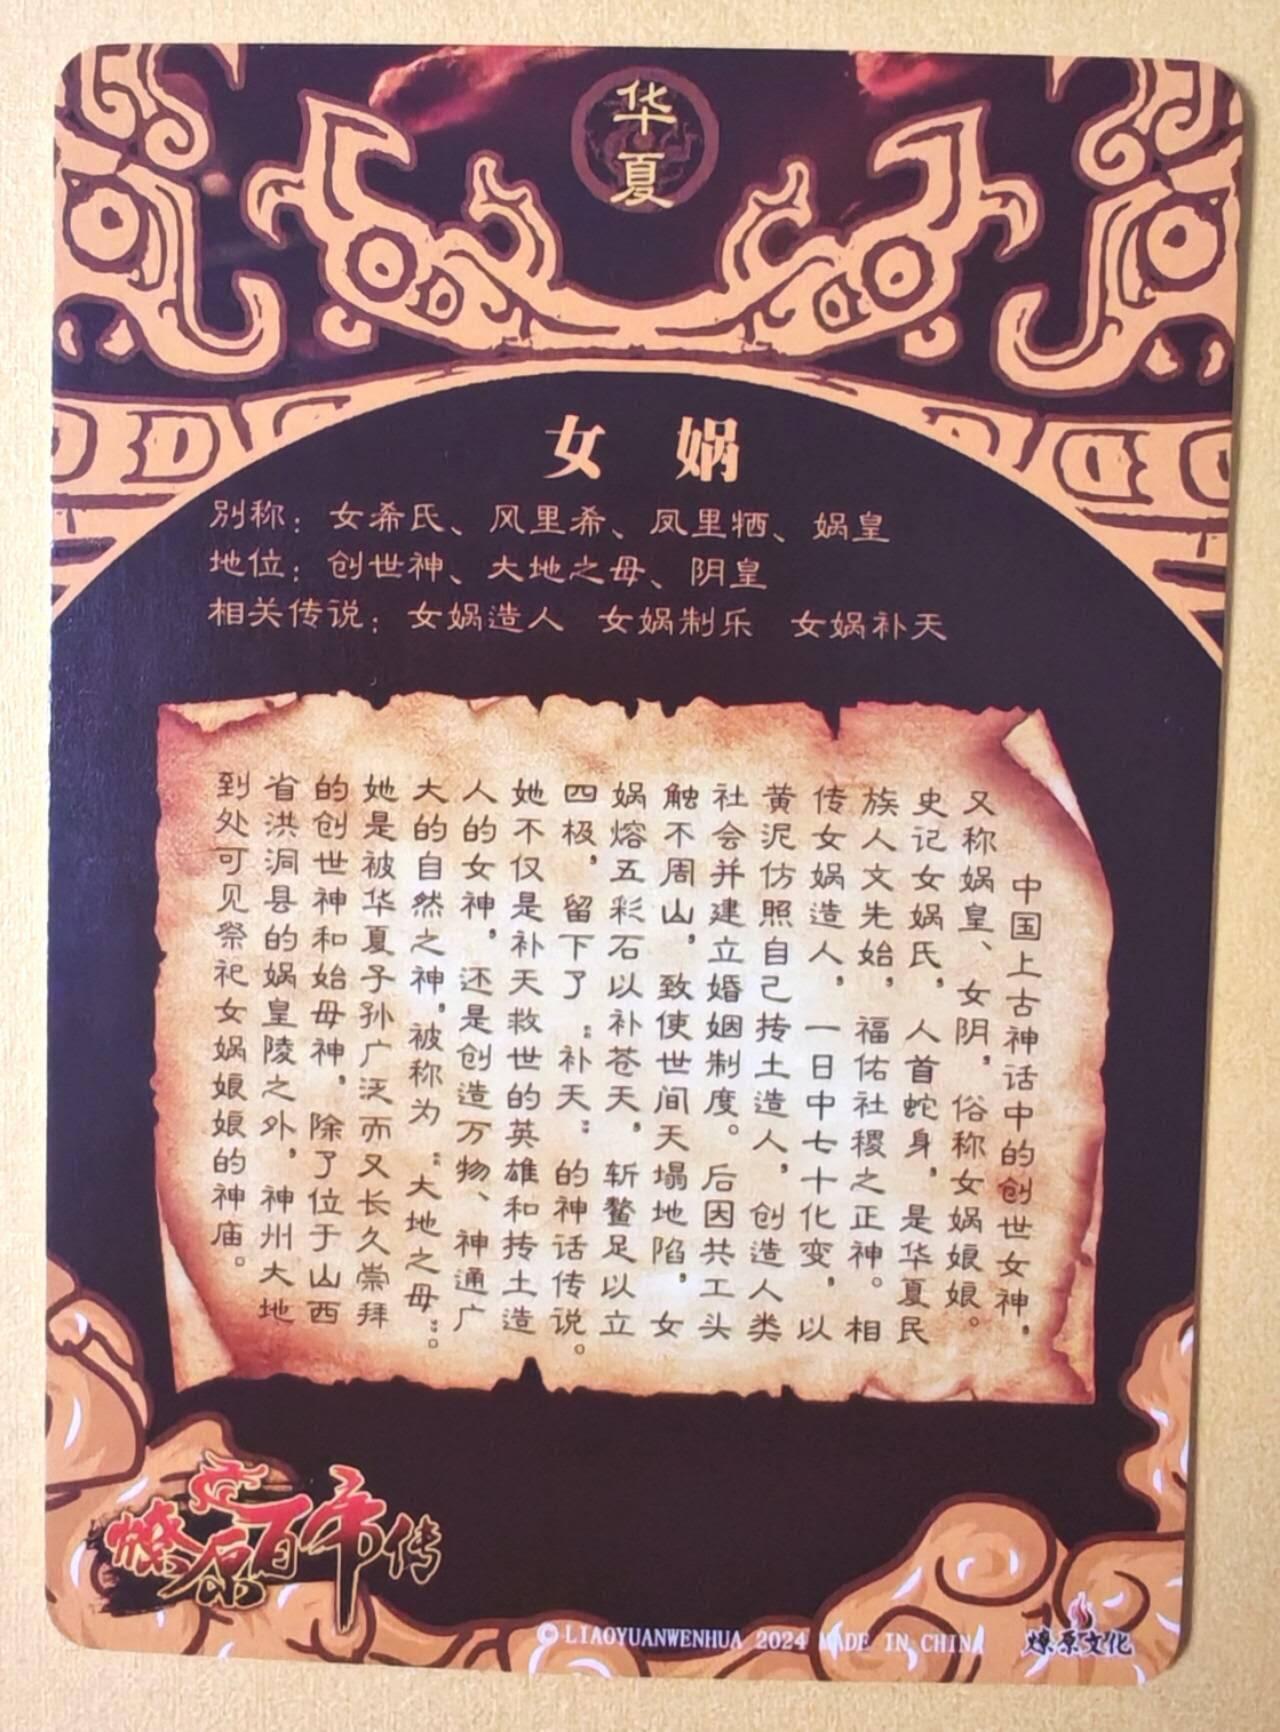 华
夏
女娲
别称：女希氏、风里希、凤里牺、娲皇
地位：创世神、大地之母、阴皇
相关传说：女娲造人 女娲制乐 女娲补天
中国上古神话中的创世女神，
又称娲皇、女阴，俗称女娲娘娘。
史记女娲氏，人首蛇身，是华夏民
族人文先始，福佑社稷之正神。相
传女娲造人，一日中七十化变，以
黄泥仿照自己抟土造人，创造人类
社会并建立婚姻制度。后因共工头
触不周山，致使世间天塌地陷，女
娲熔五彩石以补苍天，斩鳌足以立
四极，留下了“补天”的神话传说。
她不仅是补天救世的英雄和抟土造
人的女神，还是创造万物、神通广
大的自然之神，被称为“大地之母”。
她是被华夏子孙广泛而又长久崇拜
的创世神和始母神，除了位于山西
省洪洞县的娲皇陵之外，神州大地
到处可见祭祀女娲娘娘的神庙。
燎原百帝传
©LIAOYUANWENHUA 2024 MADE IN CHINA
燎原文化